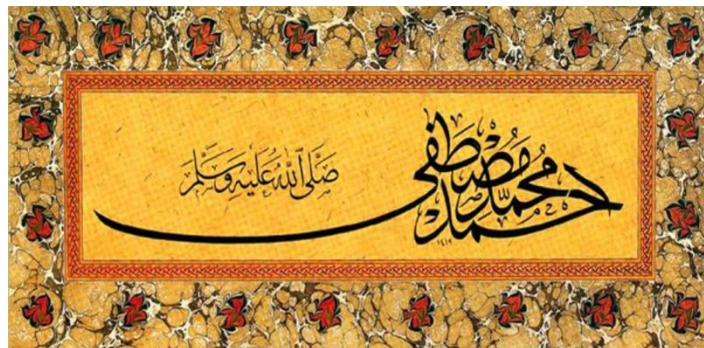 احمد محمد مصطفى
صلى الله عليه وسلم
١٤١٩